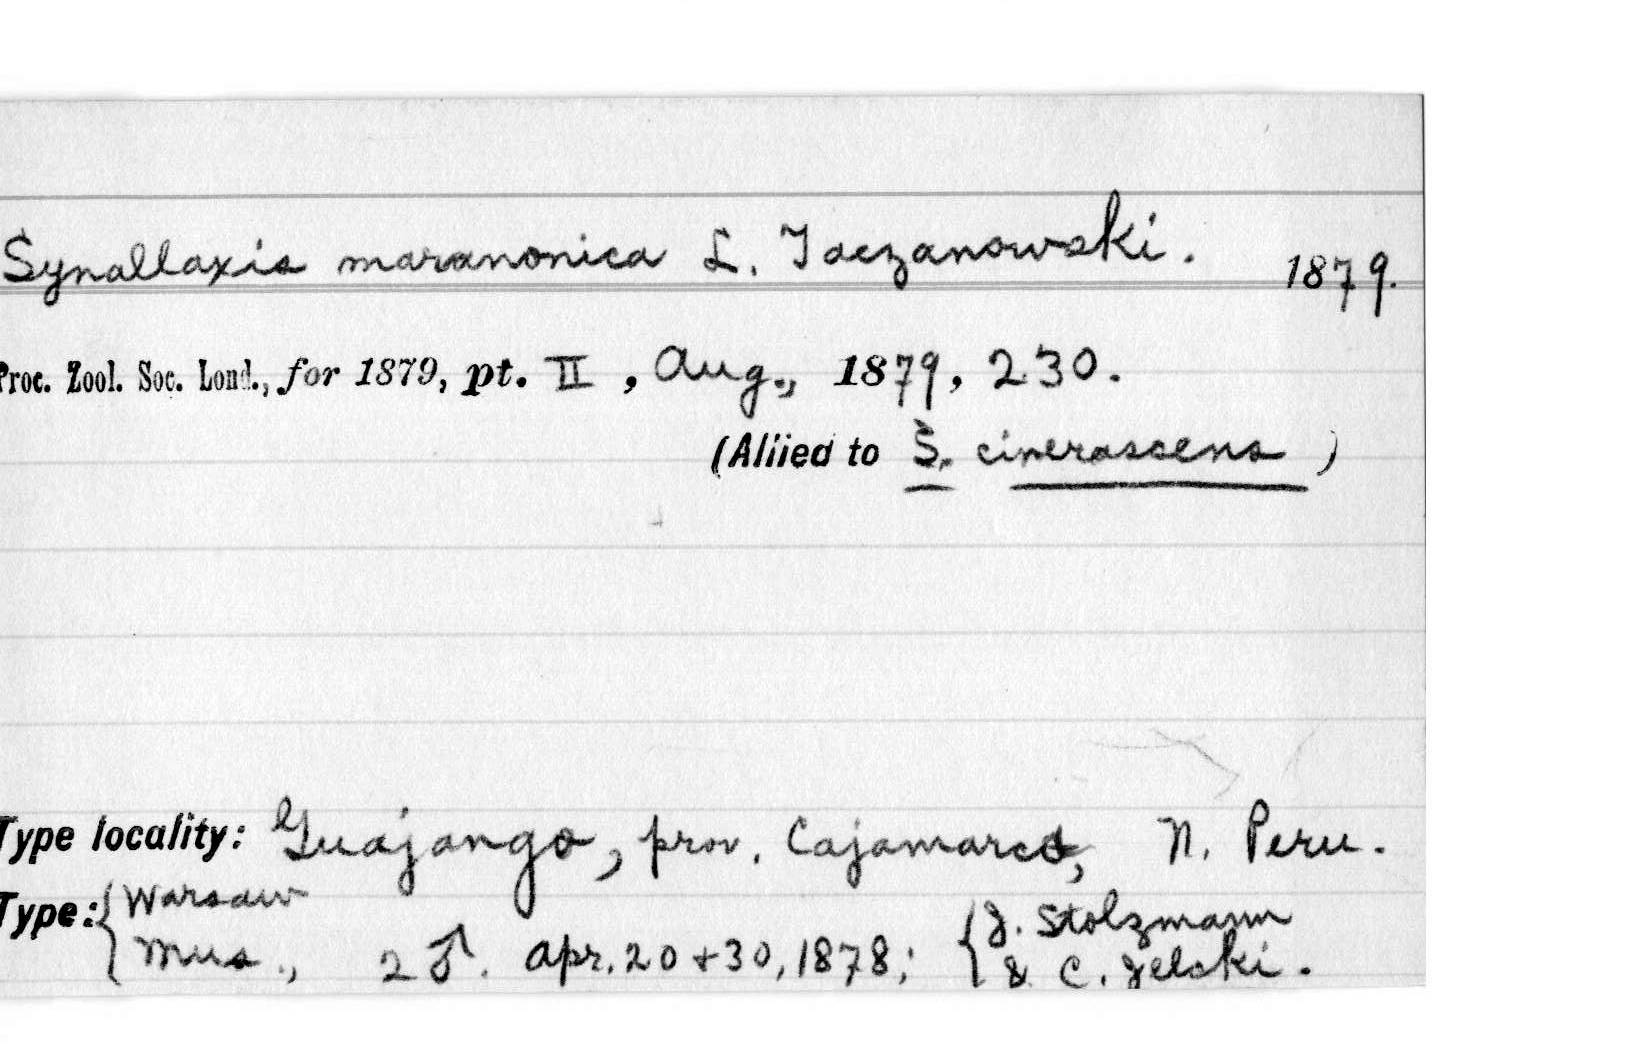 Synallaxis maranonica L. Taczanowski. 1879.
Proc. Zool. Soc. Lond., for 1879, pt. II, Aug., 1879, 230.
(Allied to S. cinerascens)
Type locality: Guajango, prov. Cajamarca, N. Peru.
Type: { Warsaw
Mus., 2 ♂. Apr. 20 + 30, 1878; { J. Stolzmann
& C. Jelski.